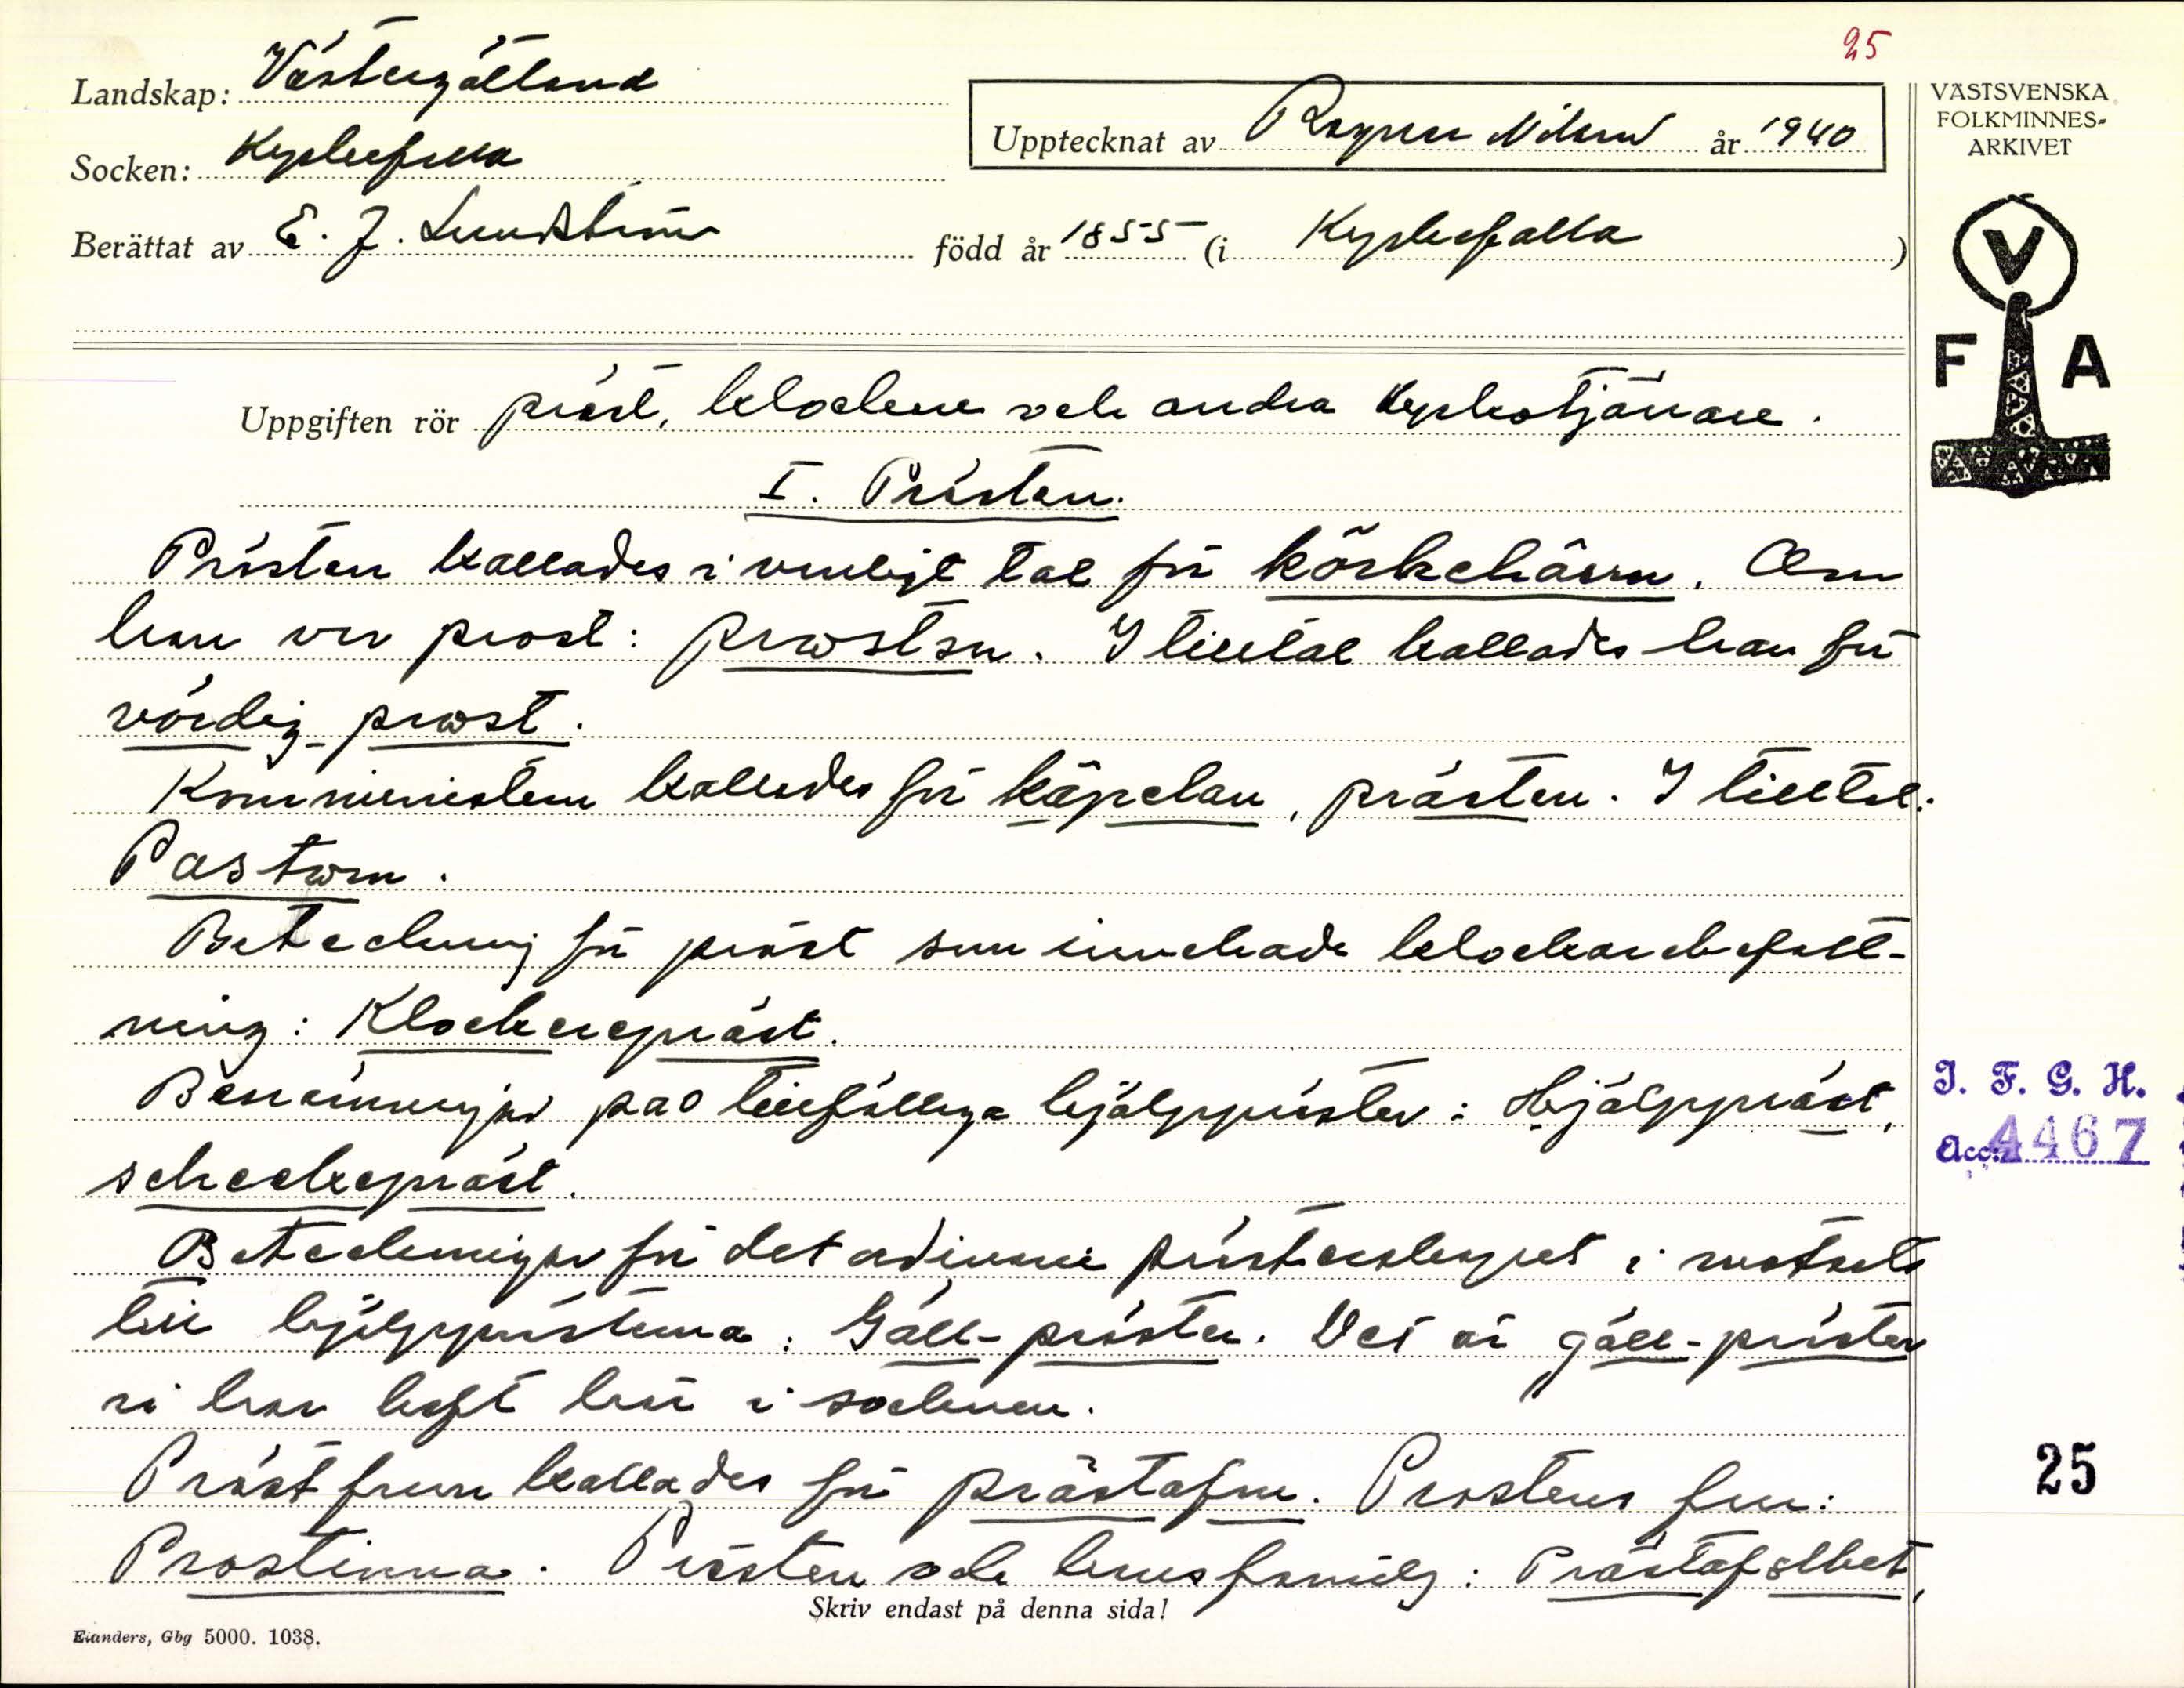 25
Landskap: Västergötland
Socken: Kyrkefalla
Upptecknat av Ragnar Nilsson år 1940
Berättat av E. J. Lundström född år 1855 (i Kyrkefalla )
VÄSTSVENSKA
FOLKMINNES-
ARKIVET
V
F A
Uppgiften rör präst, klockare och andra kyrkotjänare.
I. Prästen.
Prästen kallades i vanligt tal för körkehärn. Om
han var prost: prosten. I tilltal kallades han för
vördig prost.
Komministern kallades för käpelan, prästen. I tilltal:
Pastorn.
Beteckning för präst som innehade klockarebefatt-
ning: Klockarepräst.
Benämningar på tillfälliga hjälppräster: Hjälppräst,
scheckepräst.
Beteckningar för det ordinarie prästerskapet i motsats
till hjälpprästerna: Gäll-präster. Det är gäll-präster
vi har haft här i socknen.
Prästfrun kallades för prästafru. Prostens fru:
Prostinna. Prästen och hans familj: Prästafolket,
Skriv endast på denna sida!
Elanders, Gbg 5000. 1038.
I. F. G. H.
Acc. 4467
25